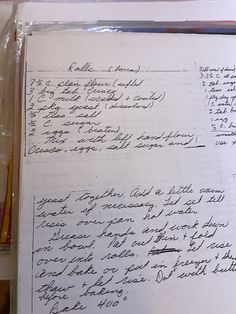 Rolls (Soma)
7 ½ C. plain flour (sifted)
3 big tab. Crisco
1 C. milk (scalded + cooled)
2 pkg yeast (dissolved)
½ tea. salt
½ C. sugar
2 eggs (beaten)
Mix with hand flour,
Crisco, eggs, salt sugar and
yeast together. Add a little warm
water if necessary. Let set till
rises over pan hot water
Grease hands and work down
in bowl. Pat out thin + fold
over into rolls. Let rise
and bake or put in freezer + then
thaw + let rise. Dot with butter
before baking.
Bake 400°